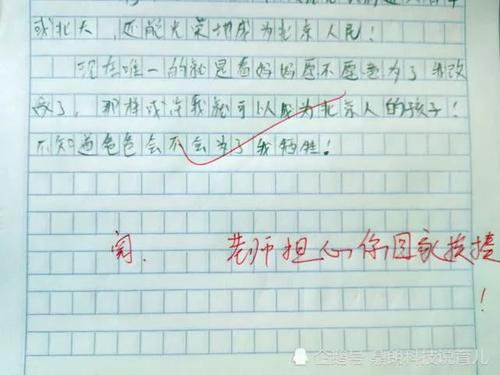 或北大，还能光荣地成为北京人民！
现在唯一的就是看妈妈愿不愿意为了我改
嫁了，那样或许我就可以成为北京人的孩子！
不知道爸爸会不会为了我牺牲！
阅. 老师担心你回家挨揍
！
企鹅号
科技说育儿